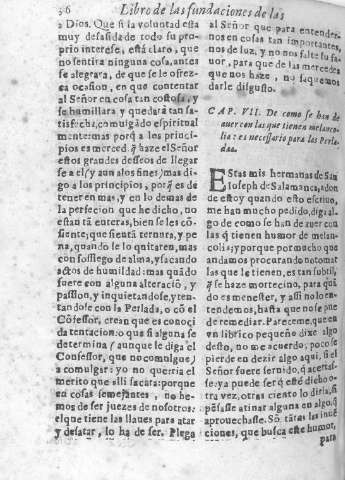 36 Libro de las fundaciones de las
a Dios. Que si la voluntad esta
muy desasida de todo su pro-
prio interese, està claro, que
no sentira ninguna cosa, antes
se alegrara, de que se le ofrez-
ca ocasion, en que contentar
al Señor en cosa tan costosa, y
se humillara y quedarà tan sa-
tisfecha, comulgãdo espiritual
mente: mas porq̃ a los princi-
pios es merced q̃ haze el Señor
estos grandes desseos de llegar
se a el (y aun a los fines) mas di-
go a los principios, porq̃ es de
tener en mas, y en lo demas de
la perfecion que he dicho, no
estan tã enteras, bien se les cõ-
siente, que sientã ternura, y pe
na, quando se lo quitaren, mas
con sossiego de alma, y sacando
actos de humildad: mas quãdo
fuere con alguna alteraciõ, y
passion, y inquietandose, y ten-
tandose con la Perlada, o cõ el
Cõfessor, crean que es conoci
da tentacion: o que si alguna se
determina (aunque le diga el
Confessor, que no comulgue)
a comulgar: yo no querria el
merito que alli sacarà: porque
en cosas semejantes, no he-
mos de ser juezes de nosotros:
el que tiene las llaues para atar
y desatar, lo ha de ser. Plega
al Señor que para entender-
nos en cosas tan importantes,
nos de luz, y no nos falte su fa-
uor, para que de las mercedes
que nos haze, no saquemos
darle disgusto.
CAP. VII. De como se han de
auer con las que tienen melanco-
lia: es necessario para las Perla-
das.
EStas mis hermanas de San
Ioseph de Salamanca, adon
de estoy quando esto escriuo,
me han mucho pedido, diga al-
go de como se han de auer con
las q̃ tienen humor de melan-
colia; y porque por mucho que
andamos procurando no tomar
las que le tienen, es tan subtil,
q̃ se haze mortezino, para quã
do es menester, y assi no lo en-
tendemos, hasta que no se pue
de remediar. Pareceme, que en
vn librico pequeño dixe algo
desto, no me acuerdo; poco se
pierde en dezir algo aqui, si el
Señor fuere seruido, q̃ acertas-
se: ya puede ser q̃ estè dicho o-
tra vez, otras ciento lo diria, si
pẽsasse atinar alguna en algo, q̃
aprouechasse. Sõ tãtas las inuẽ
ciones, que busca este humor,
para